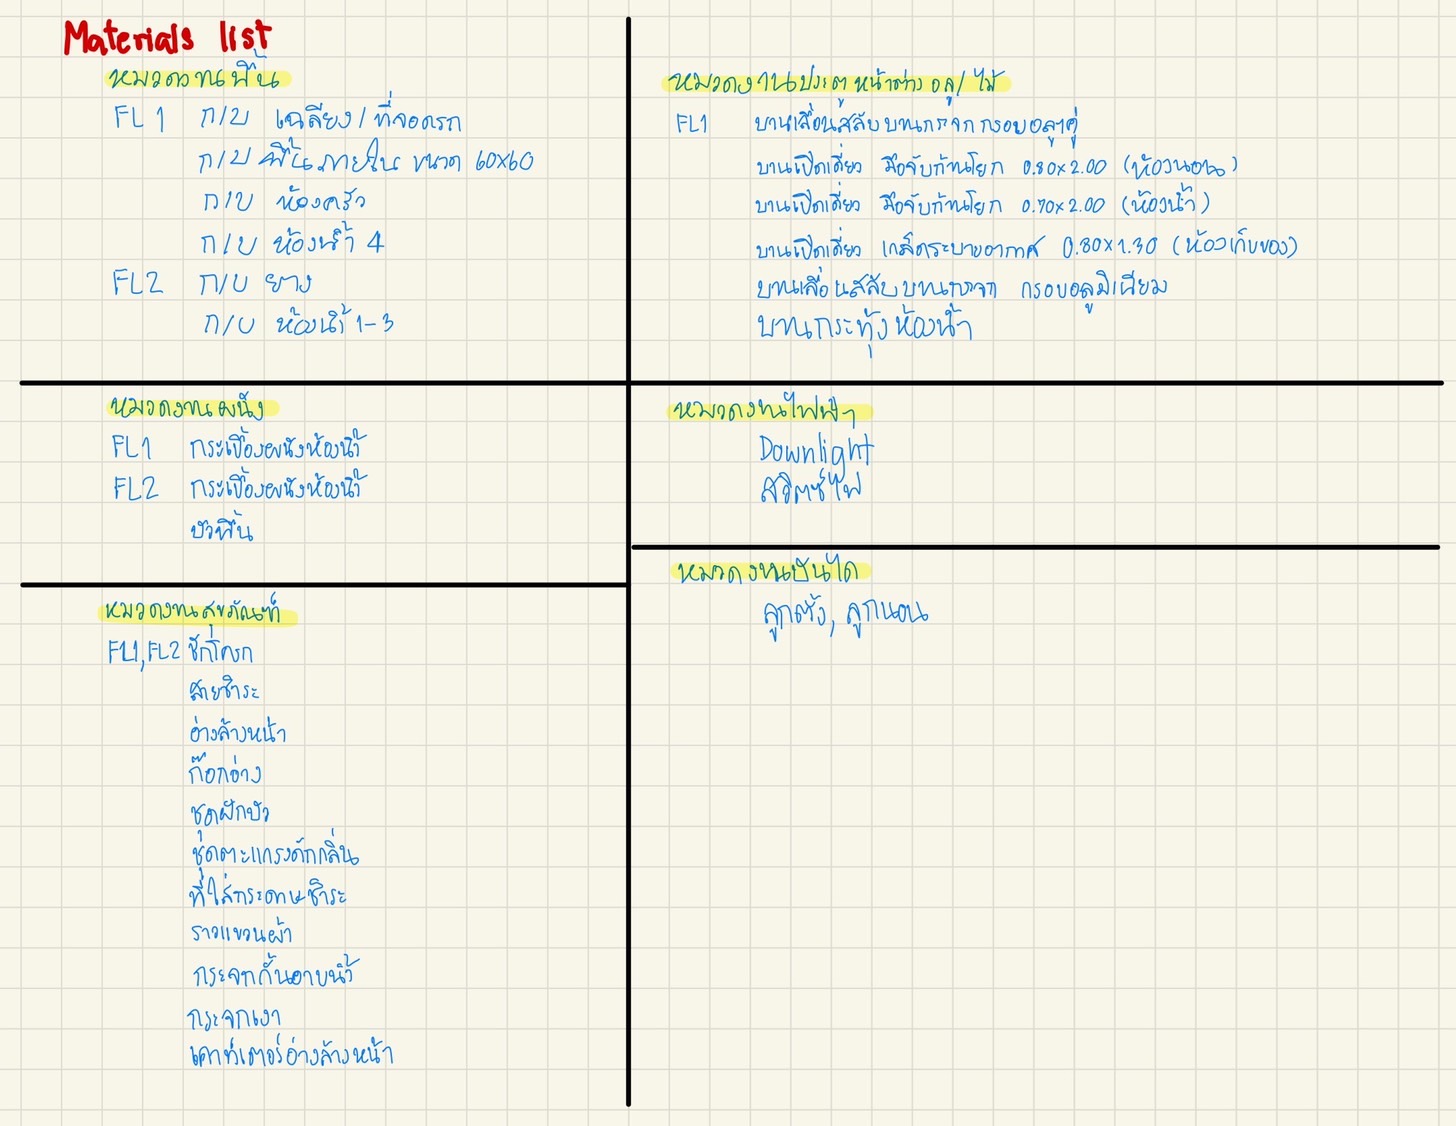 Materials list
หมวดงานพื้น
FL 1 ก/บ เฉลียง / ที่จอดรถ
ก/บ พื้นภายใน ขนาด 60x60
ก/บ ห้องครัว
ก/บ ห้องน้ำ 4
FL2 ก/บ ยาง
ก/บ ห้องน้ำ 1-3
หมวดงานผนัง
FL1 กระเบื้องผนังห้องน้ำ
FL2 กระเบื้องผนังห้องน้ำ
บัวพื้น
หมวดงานสุขภัณฑ์
FL1,FL2 ชักโครก
สายชำระ
อ่างล้างหน้า
ก๊อกอ่าง
ชุดฝักบัว
ชุดตะแกรงดักกลิ่น
ที่ใส่กระดาษชำระ
ราวแขวนผ้า
กระจกกั้นอาบน้ำ
กระจกเงา
เคาท์เตอร์อ่างล้างหน้า
หมวดงานประตู หน้าต่าง อลู/ ไม้
FL1 บานเลื่อนสลับ บานกระจก กรอบอลูฯคู่
บานเปิดเดี่ยว มือจับก้านโยก 0.80x2.00 (ห้องนอน)
บานเปิดเดี่ยว มือจับก้านโยก 0.70x2.00 (ห้องน้ำ)
บานเปิดเดี่ยว เกล็ดระบายอากาศ 0.80x1.30 (ห้องเก็บของ)
บานเลื่อนสลับ บานกระจก กรอบอลูมิเนียม
บานกระทุ้งห้องน้ำ
หมวดงานไฟฟ้า
Downlight
สวิตซ์ไฟ
หมวดงานบันได
ลูกตั้ง, ลูกนอน